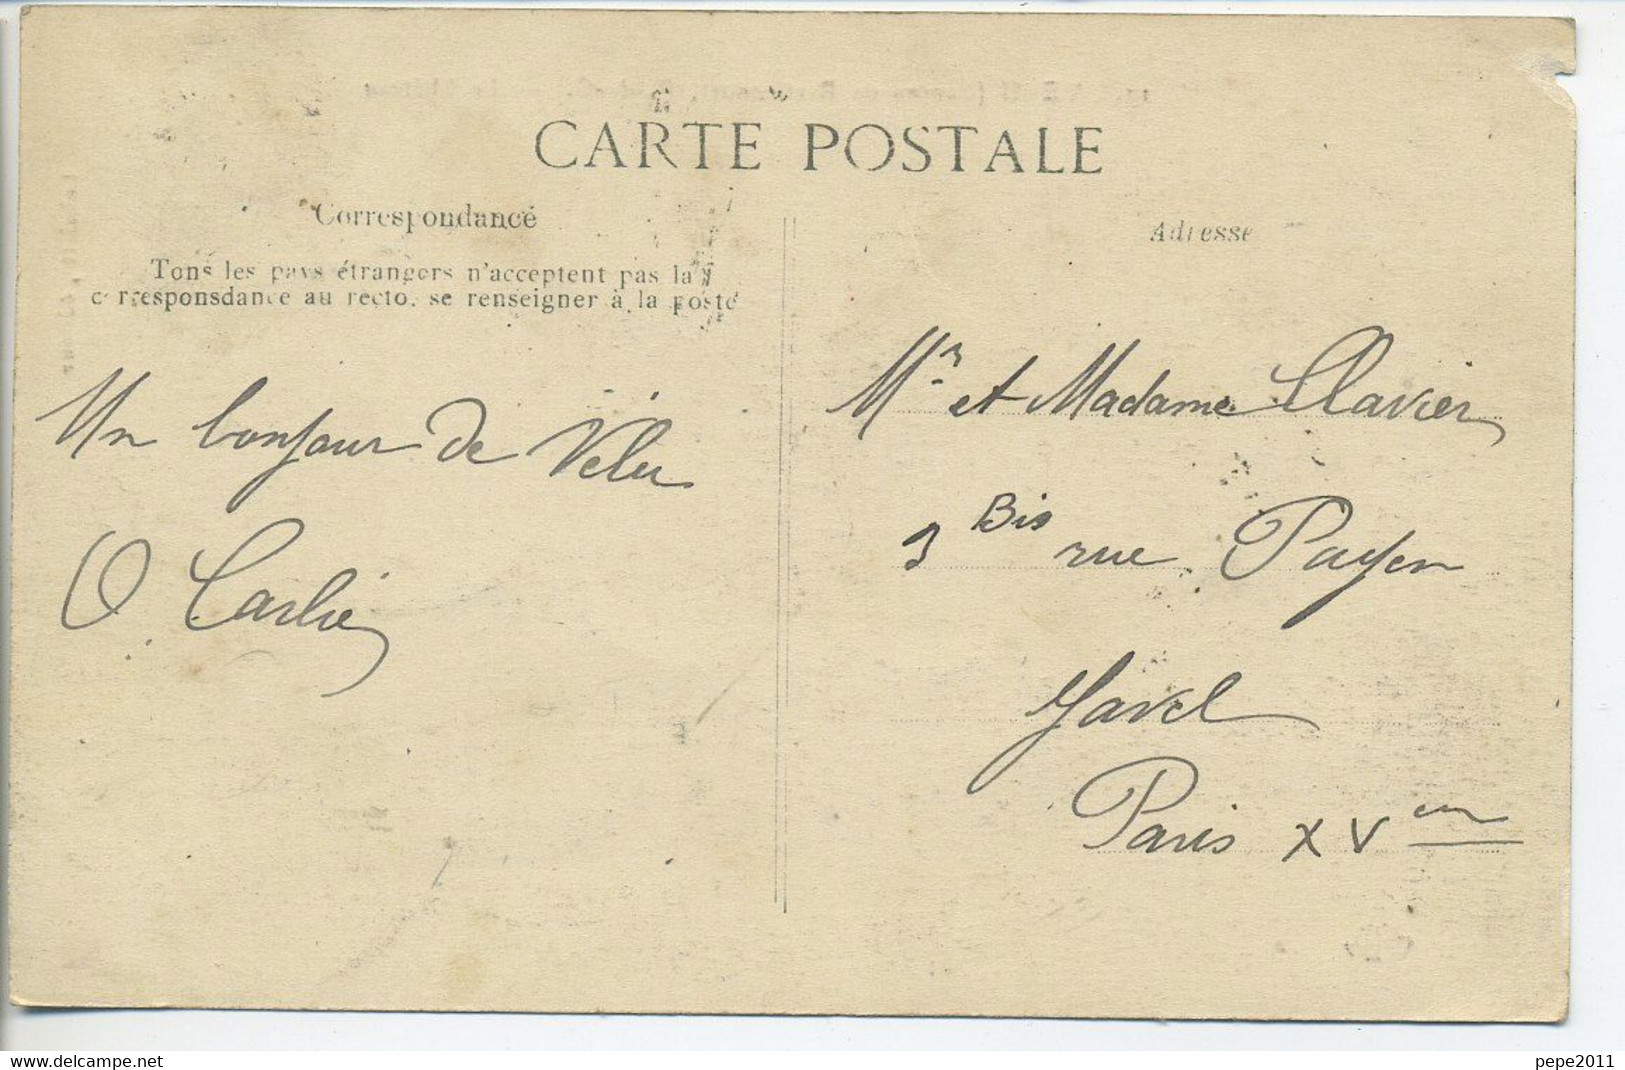 CARTE POSTALE
Correspondance
Tous les pays étrangers n'acceptent pas la
corresponsdance au recto, se renseigner à la poste
Adresse
Un bonjour de Velu
O. Carlier
Mr et Madame Clavier
3 Bis rue Payen
Javel
Paris XVem
www.delcampe.net
pepe2011